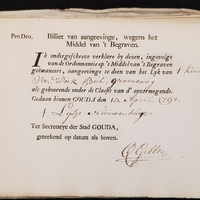 Pro Deo. Billiet van aangeevinge, wegens het
Middel van 't Begraven.
IK ondergeschreve verklare by dezen, ingevolge
van de Ordonnantie op 't Middel van 't Begraven
geëmaneert, aangevinge te doen van het Lyk van 1 kind
van Dirk
als gehoorende onder de Classis van d' onvermogende.
Gedaan binnen GOUDA den 12 April 1790.
1 Lysje
Ter Secretarye der Stad GOUDA,
geteekend op datum als boven.